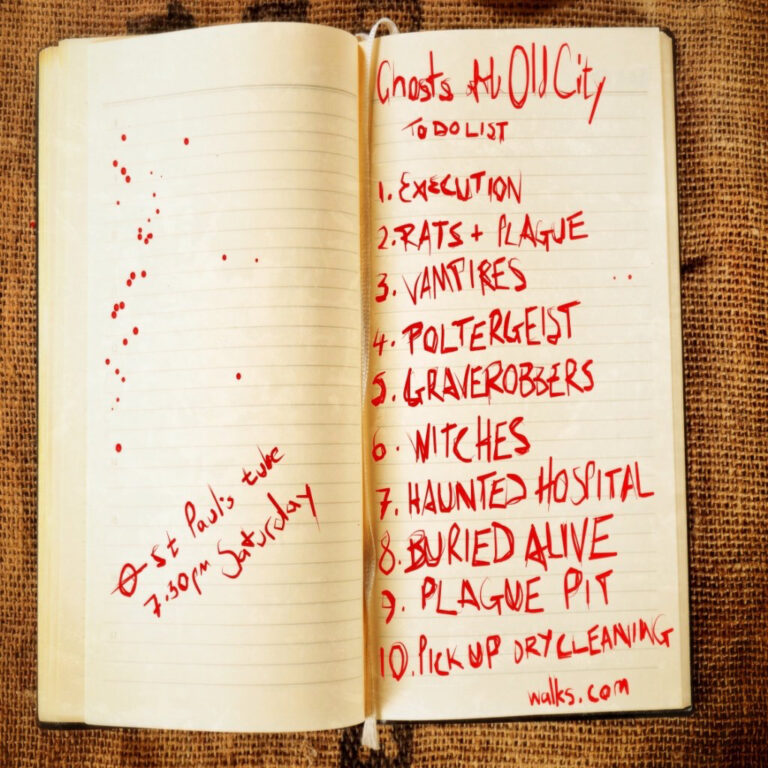 ⊖ St Paul's tube
7.30pm Saturday
Ghosts of the Old City
TO DO LIST
1. EXECUTION
2. RATS + PLAGUE
3. VAMPIRES
4. POLTERGEIST
5. GRAVEROBBERS
6. WITCHES
7. HAUNTED HOSPITAL
8. BURIED ALIVE
9. PLAGUE PIT
10. PICK UP DRY CLEANING
walks.com